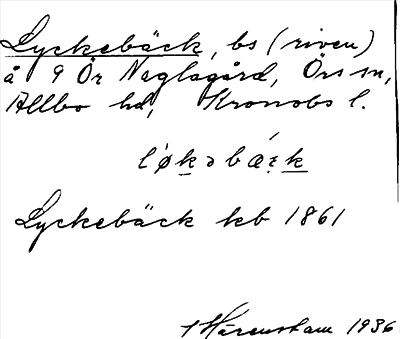 Lyckebäck, bs (riven)
å 9 Ör Naglagård, Örs sn,
Allbo hd, Kronobs l.
l ǿk ə b æ̀r k
Lyckebäck kb 1861
1936